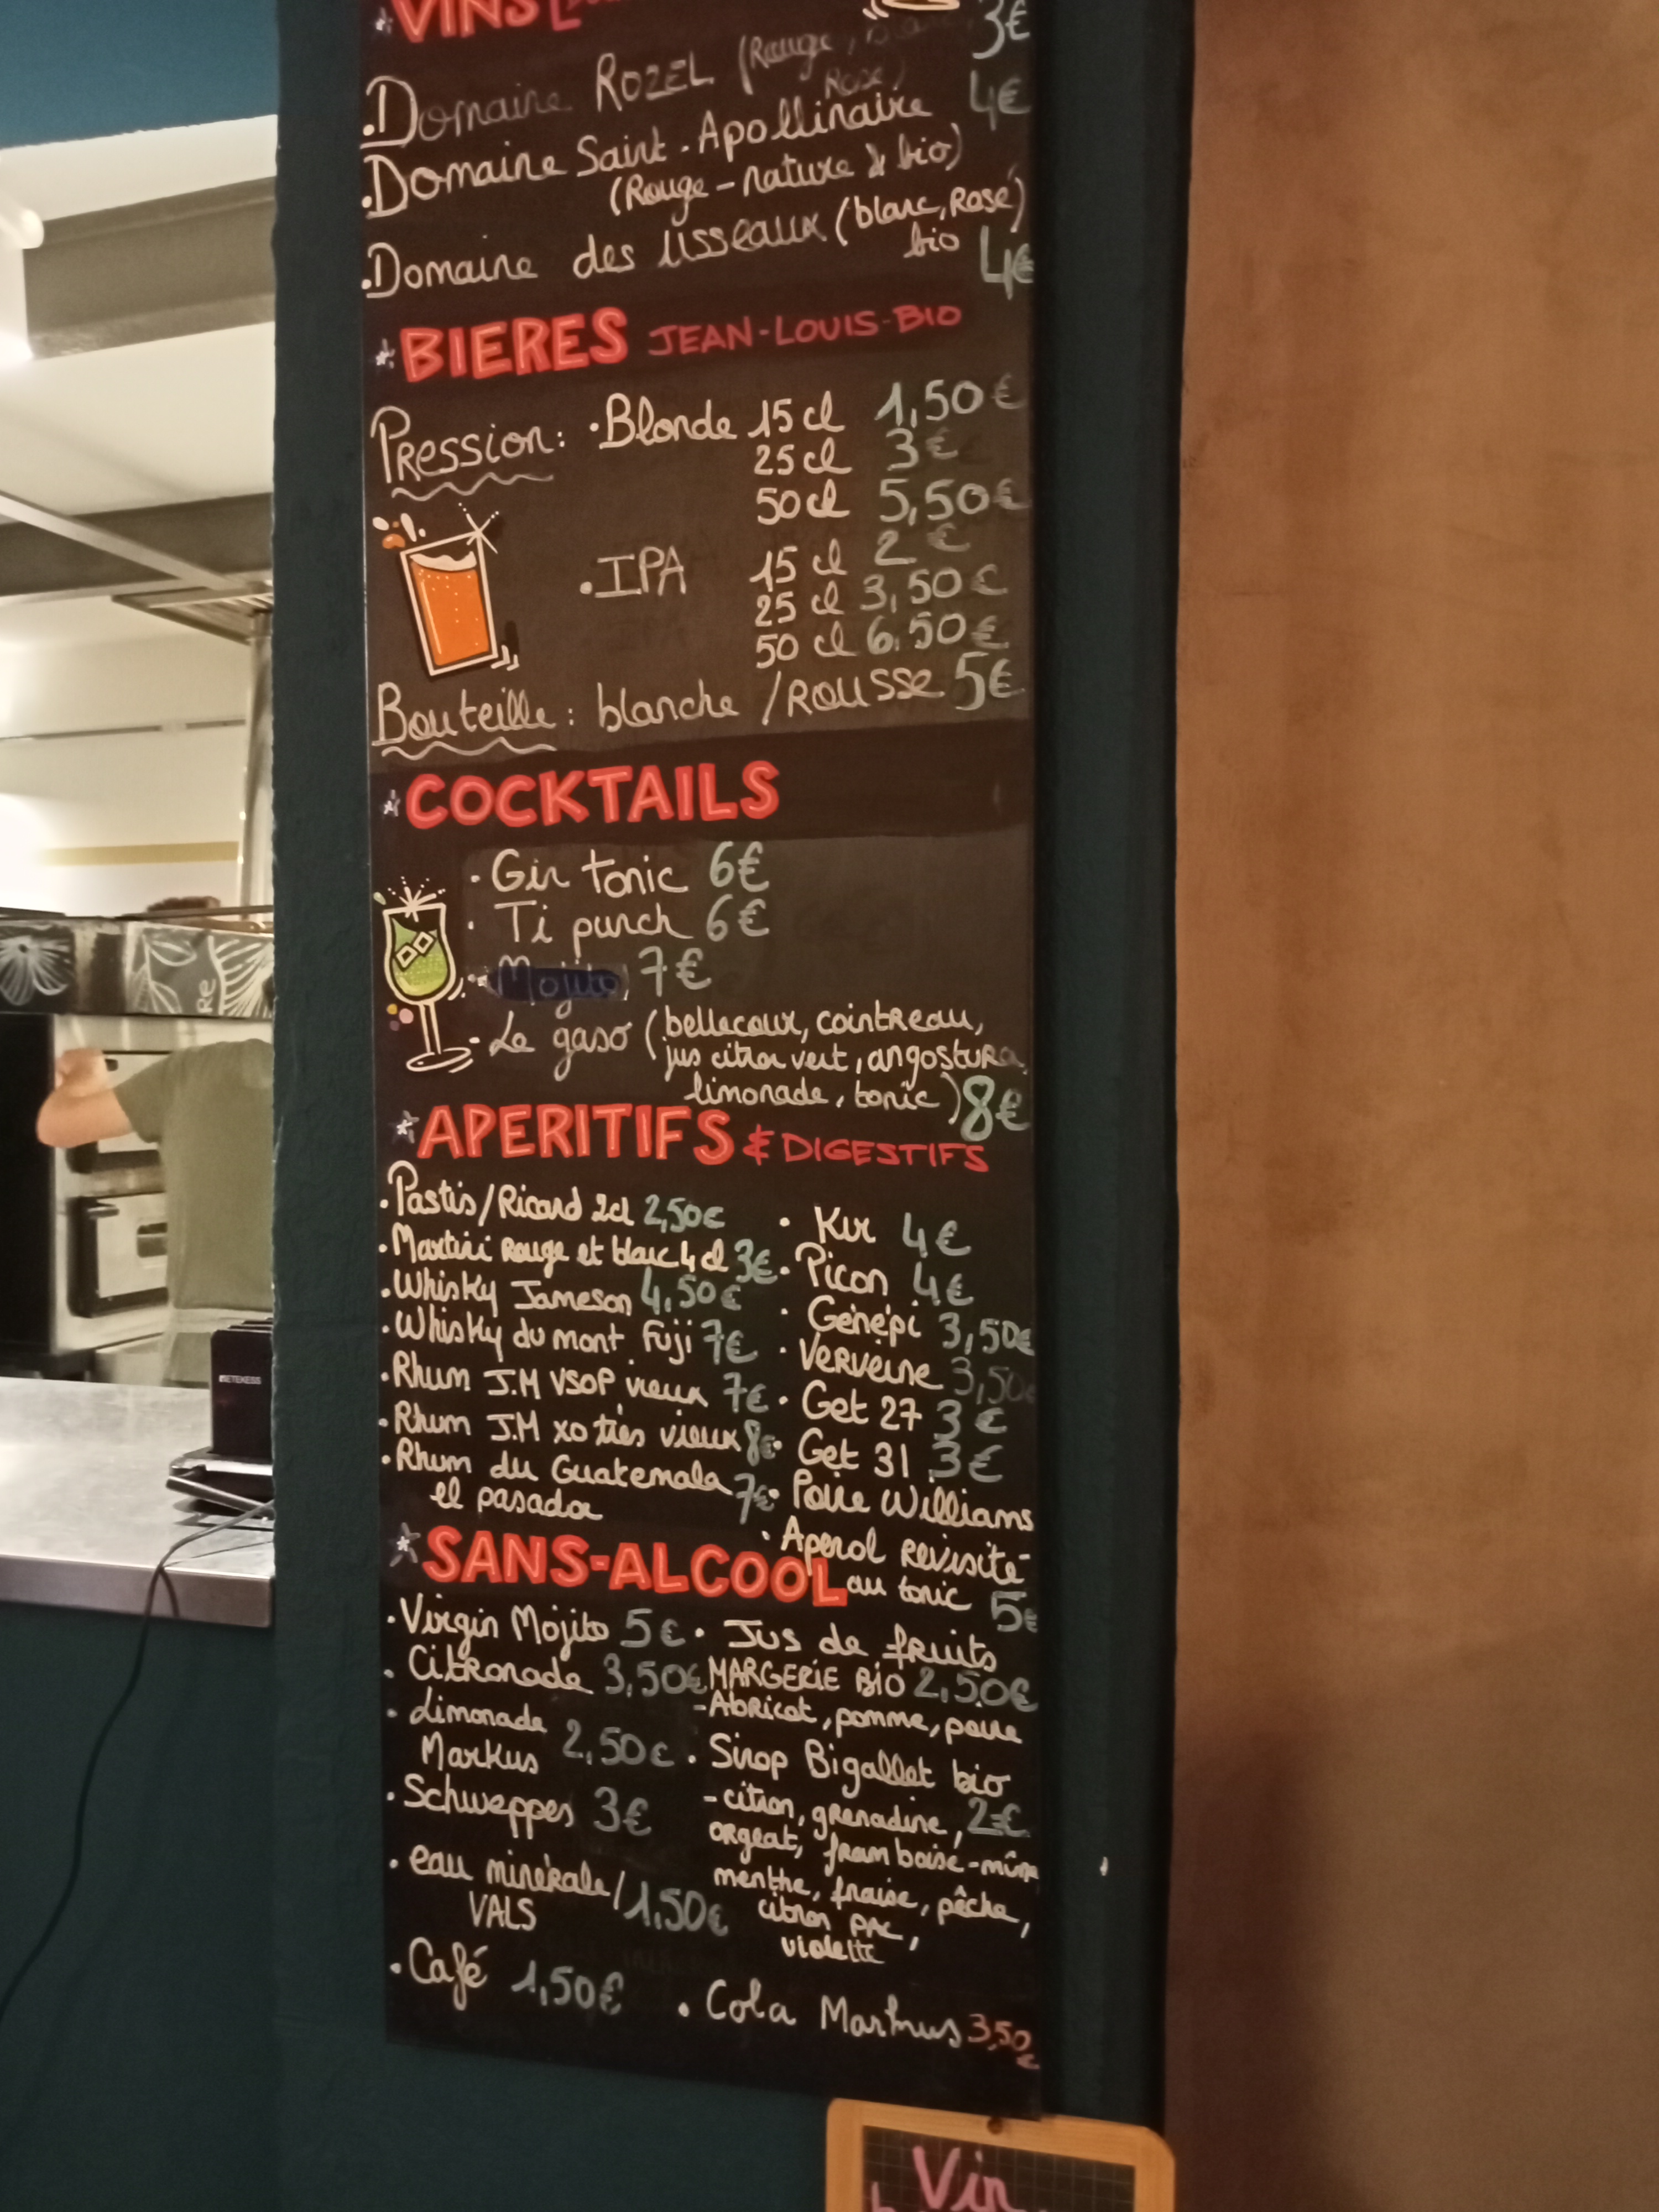 VINS
3€
.Domaine ROZEL (Rouge,
Rosé)
.Domaine Saint-Apollinaire 4€
(Rouge-nature & bio)
.Domaine des Lisseaux (blanc, Rosé)
bio 4€
BIERES JEAN-LOUIS-BIO
Pression: .Blonde 15 cl 1,50€
25 cl 3€
50cl 5,50€
.IPA 15 cl 2€
25 cl 3,50€
50 cl 6.50€
Bouteille: blanche /ROUSSE 5€
COCKTAILS
. Gin tonic 6€
. Ti punch 6€
. Mojito 7€
. Le gaso (bellecour, cointreau,
jus citron vert, angostura,
limonade, tonic) 8€
APERITIFS & DIGESTIFS
.Pastis/Ricard 2cl 2,50€
.Martini Rouge et blanc 4 cl 3€
.Whisky Jameson 4,50€
.Whisky du mont Fuji 7€
.Rhum J.M VSOP vieux 7€
.Rhum J.M xo très vieux 8€
.Rhum du Guatemala 7€
el pasador
. Kir 4€
. Picon 4€
. Génépi 3,50€
. Verveine 3,50€
. Get 27 3€
. Get 31 3€
. Poire Williams
. Aperol revisité
au tonic 5€
SANS-ALCOOL
.Virgin Mojito 5€
. Citronade 3,50€
. Limonade
Markus 2,50€
. Schweppes 3€
. eau minérale/ 1,50€
VALS
. Café 1,50€
. Jus de fruits
MARGERIE BIO 2,50€
-Abricot, pomme, poire
. Sirop Bigallet bio
-citron, grenadine, 2€
orgeat, framboise-mûre
menthe, fraise, pêche,
citron PAC,
violette
. Cola Markus 3,50
€
METEKESS
RE
Vin